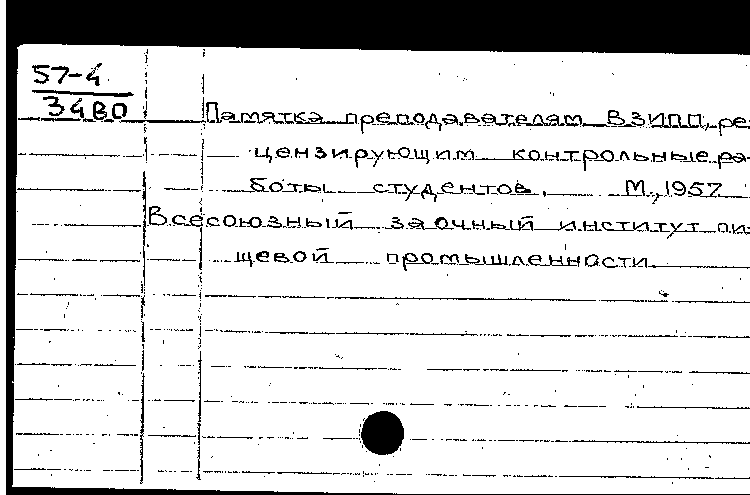 57-4
3480
Памятка преподавателям ВЗИПП, ре-
цензирующим контрольные ра-
боты студентов. М., 1957
Всесоюзный заочный институт пи-
щевой промышленности.